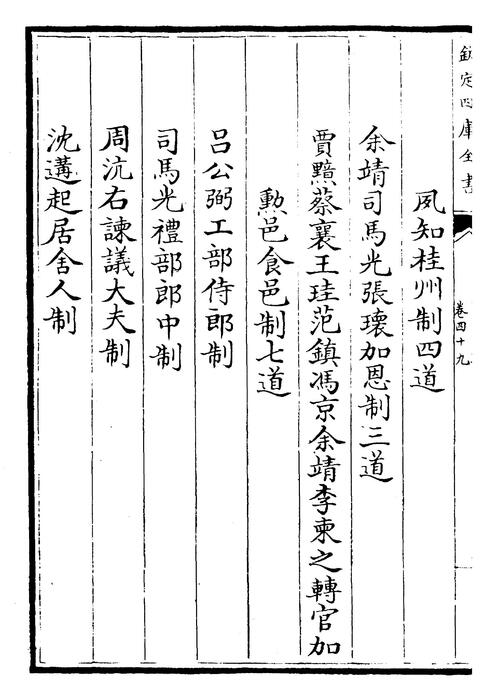 欽定四庫全書
卷四十九
夙知桂州制四道
余靖司馬光張瓌加恩制三道
賈黯蔡襄王珪范鎮馮京余靖李柬之轉官加
勲邑食邑制七道
吕公弼工部侍郎制
司馬光禮部郎中制
周沆右諫議大夫制
沈遘起居舍人制